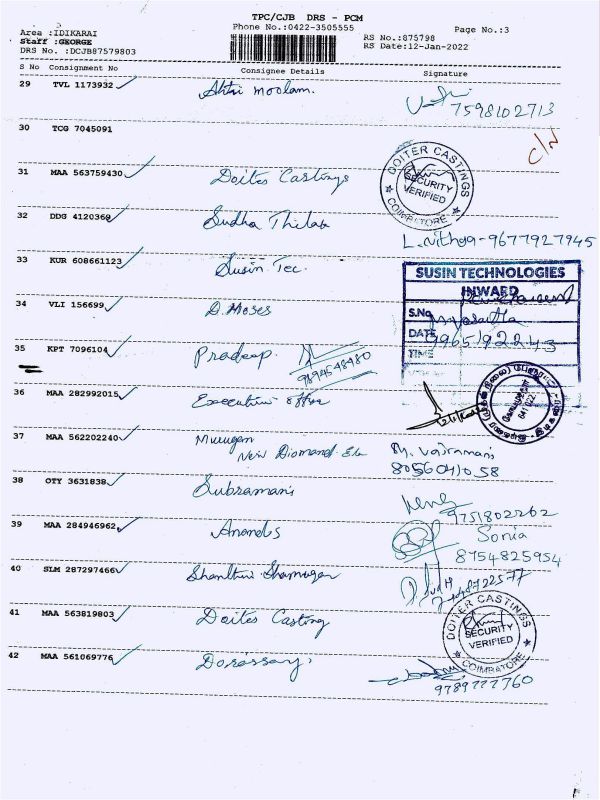 TPC/CJB DRS - PCM
Phone No.:0422-3505555
Page No.:3
Area :IDIKARAI
Staff :GEORGE
DRS No. :DCJB87579803
RS No.:875798
RS Date:12-Jan-2022
S No Consignment No Consignee Details Signature
29 TVL 1173932 Moolam.
7598102713
30 TCG 7045091 C/N
31 MAA 563759430 Doites Castings
DOITER CASTINGS SECURITY VERIFIED COIMBATORE
32 DDG 4120368 Sudha Thilak
L. Nithya-9677927945
33 KUR 608661123 Susin Tec.
SUSIN TECHNOLOGIES
INWARD
S.No
DATE 9965192243
TIME
34 VLI 156699 D. Moses
35 KPT 7096104 Pradeep
9894548480
36 MAA 282992015 Executive office
37 MAA 562202240 Murugan
New Diomand Ele
8056041058
38 OTY 3631838 Subramani
9751802262
39 MAA 284946962 Anands
Sonia
8754825954
40 SLM 287297466 Shanthi Shamugar
41 MAA 563819803 Doites Casting
DOITER CASTINGS SECURITY VERIFIED COIMBATORE
42 MAA 561069776
9789777760